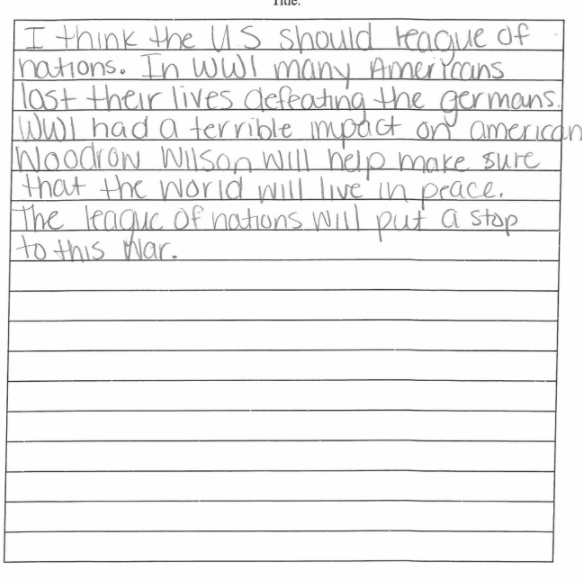 Title:
I think the US should league of
nations. In WW1 many Americans
lost their lives defeating the germans.
WW1 had a terrible impact on american
Woodrow Wilson will help make sure
that the world will live in peace.
The league of nations will put a stop
to this war.